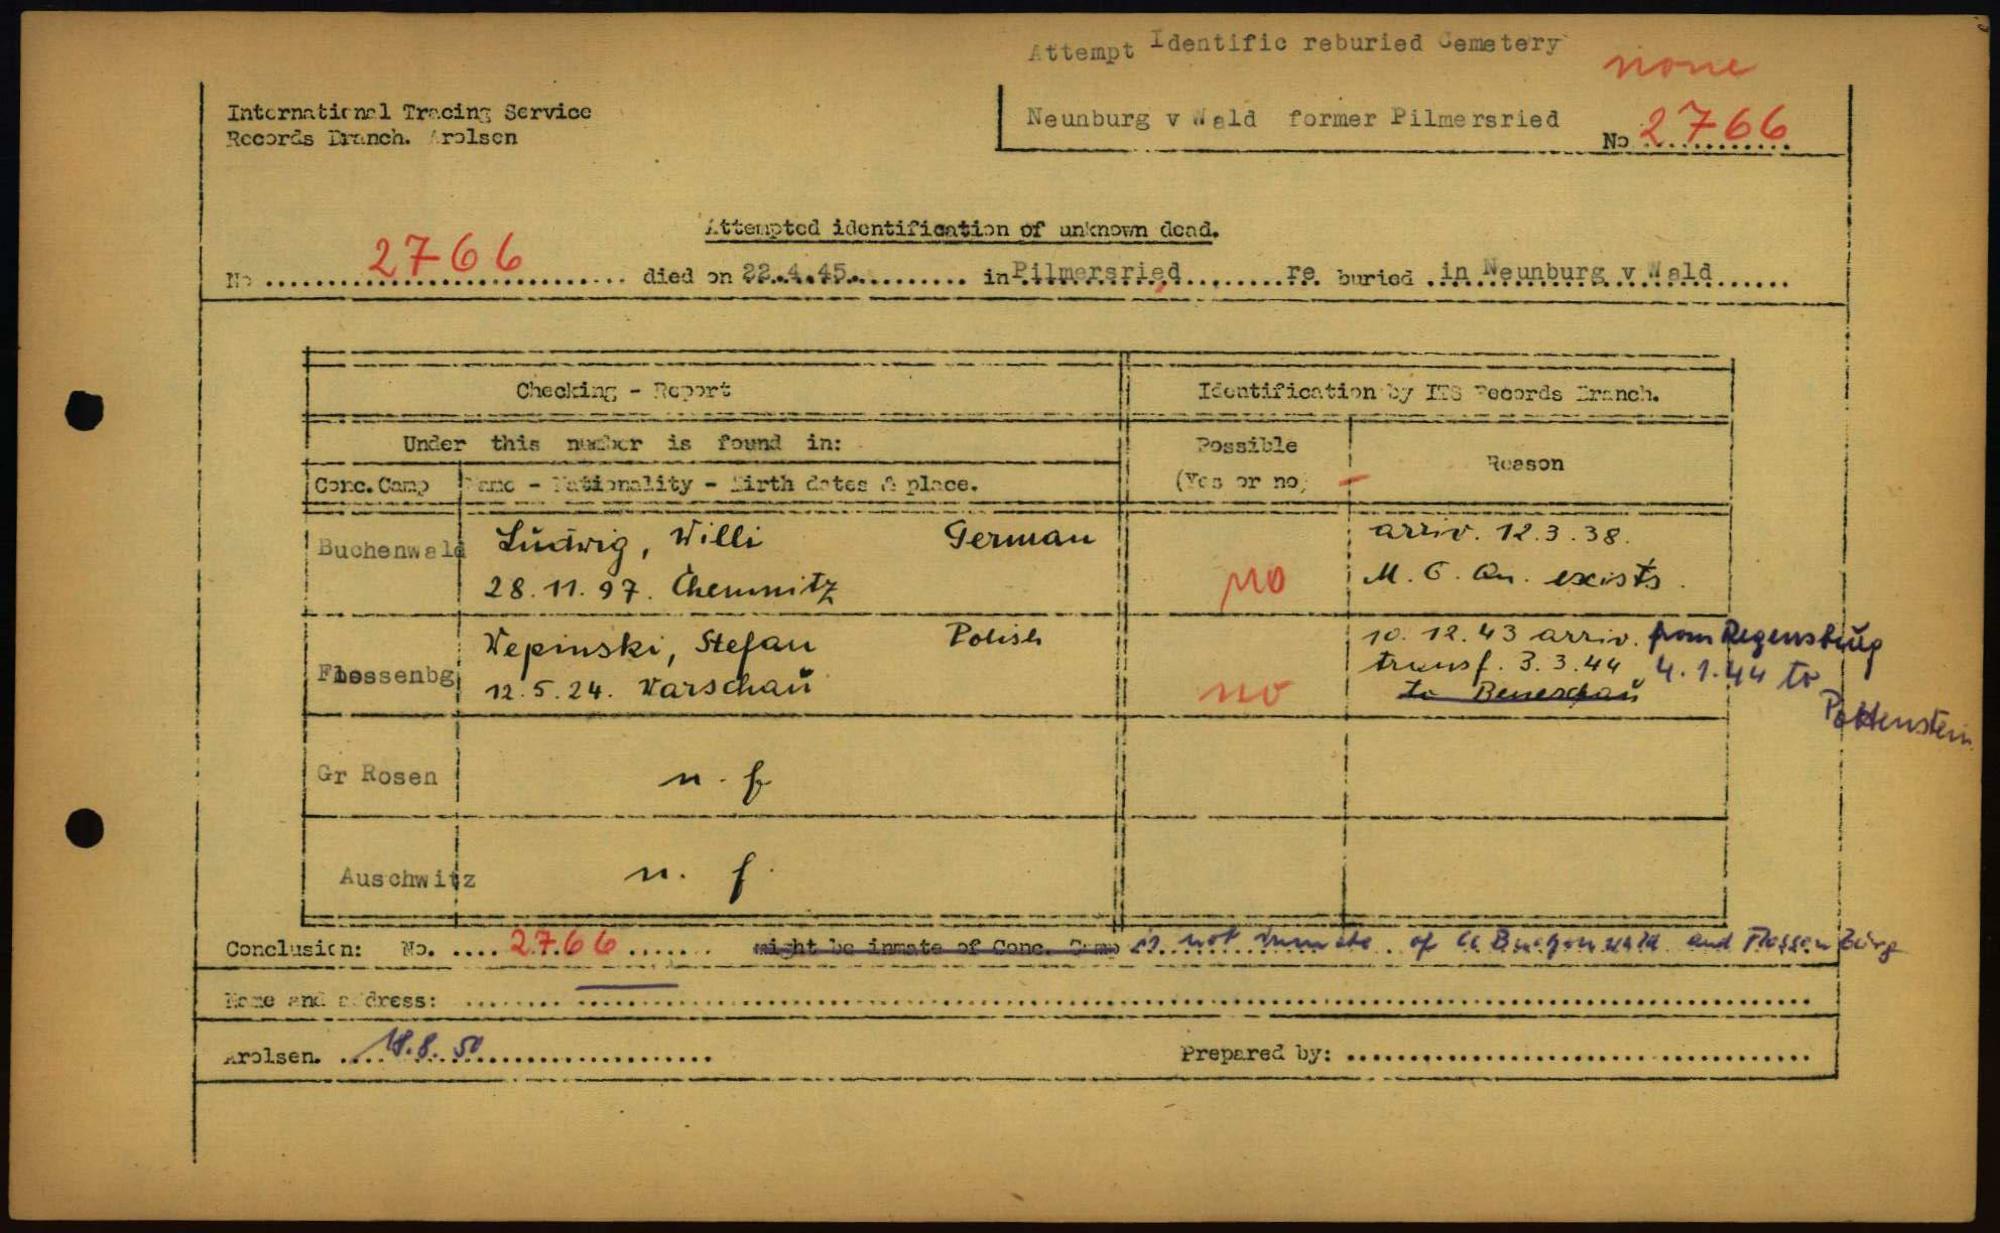 Attempt Identific reburied Cemetery
none
International Tracing Service
Records Branch. Arolsen
Neunburg v Wald former Pilmersried
No 2766
Attempted identification of unknown dead.
No 2766 died on 22.4.45. in Pilmersried re buried in Neunburg v Wald
Checking - Report
Identification by ITS Records Branch.
Under this number is found in:
Possible
(Yes or no)
Reason
Conc. Camp
Name - Nationality - Birth dates & place.
Buchenwald
Ludwig, Willi German
28.11.97. Chemnitz
no
arriv. 12.3.38.
M. C. exists.
Flossenbg
Wepinski, Stefan Polish
12.5.24. Warschau
no
10.12.43 arriv. from Regensburg
transf. 3.3.44 4.1.44 to
to Beneschau
Pottenstein
Gr Rosen
n. f
Auschwitz
n. f.
Conclusion: No. 2766 might be inmate of Conc. Camp is not inmate of CC Buchenwald and Flossenbürg
Name and address:
Arolsen. 18.8.50
Prepared by: